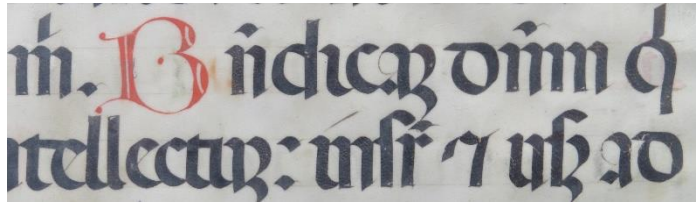 m̄. Bn̄dicaꝫ dn̄m qͥ
intellectuꝫ: inſr̄ ⁊ uſꝫ ad